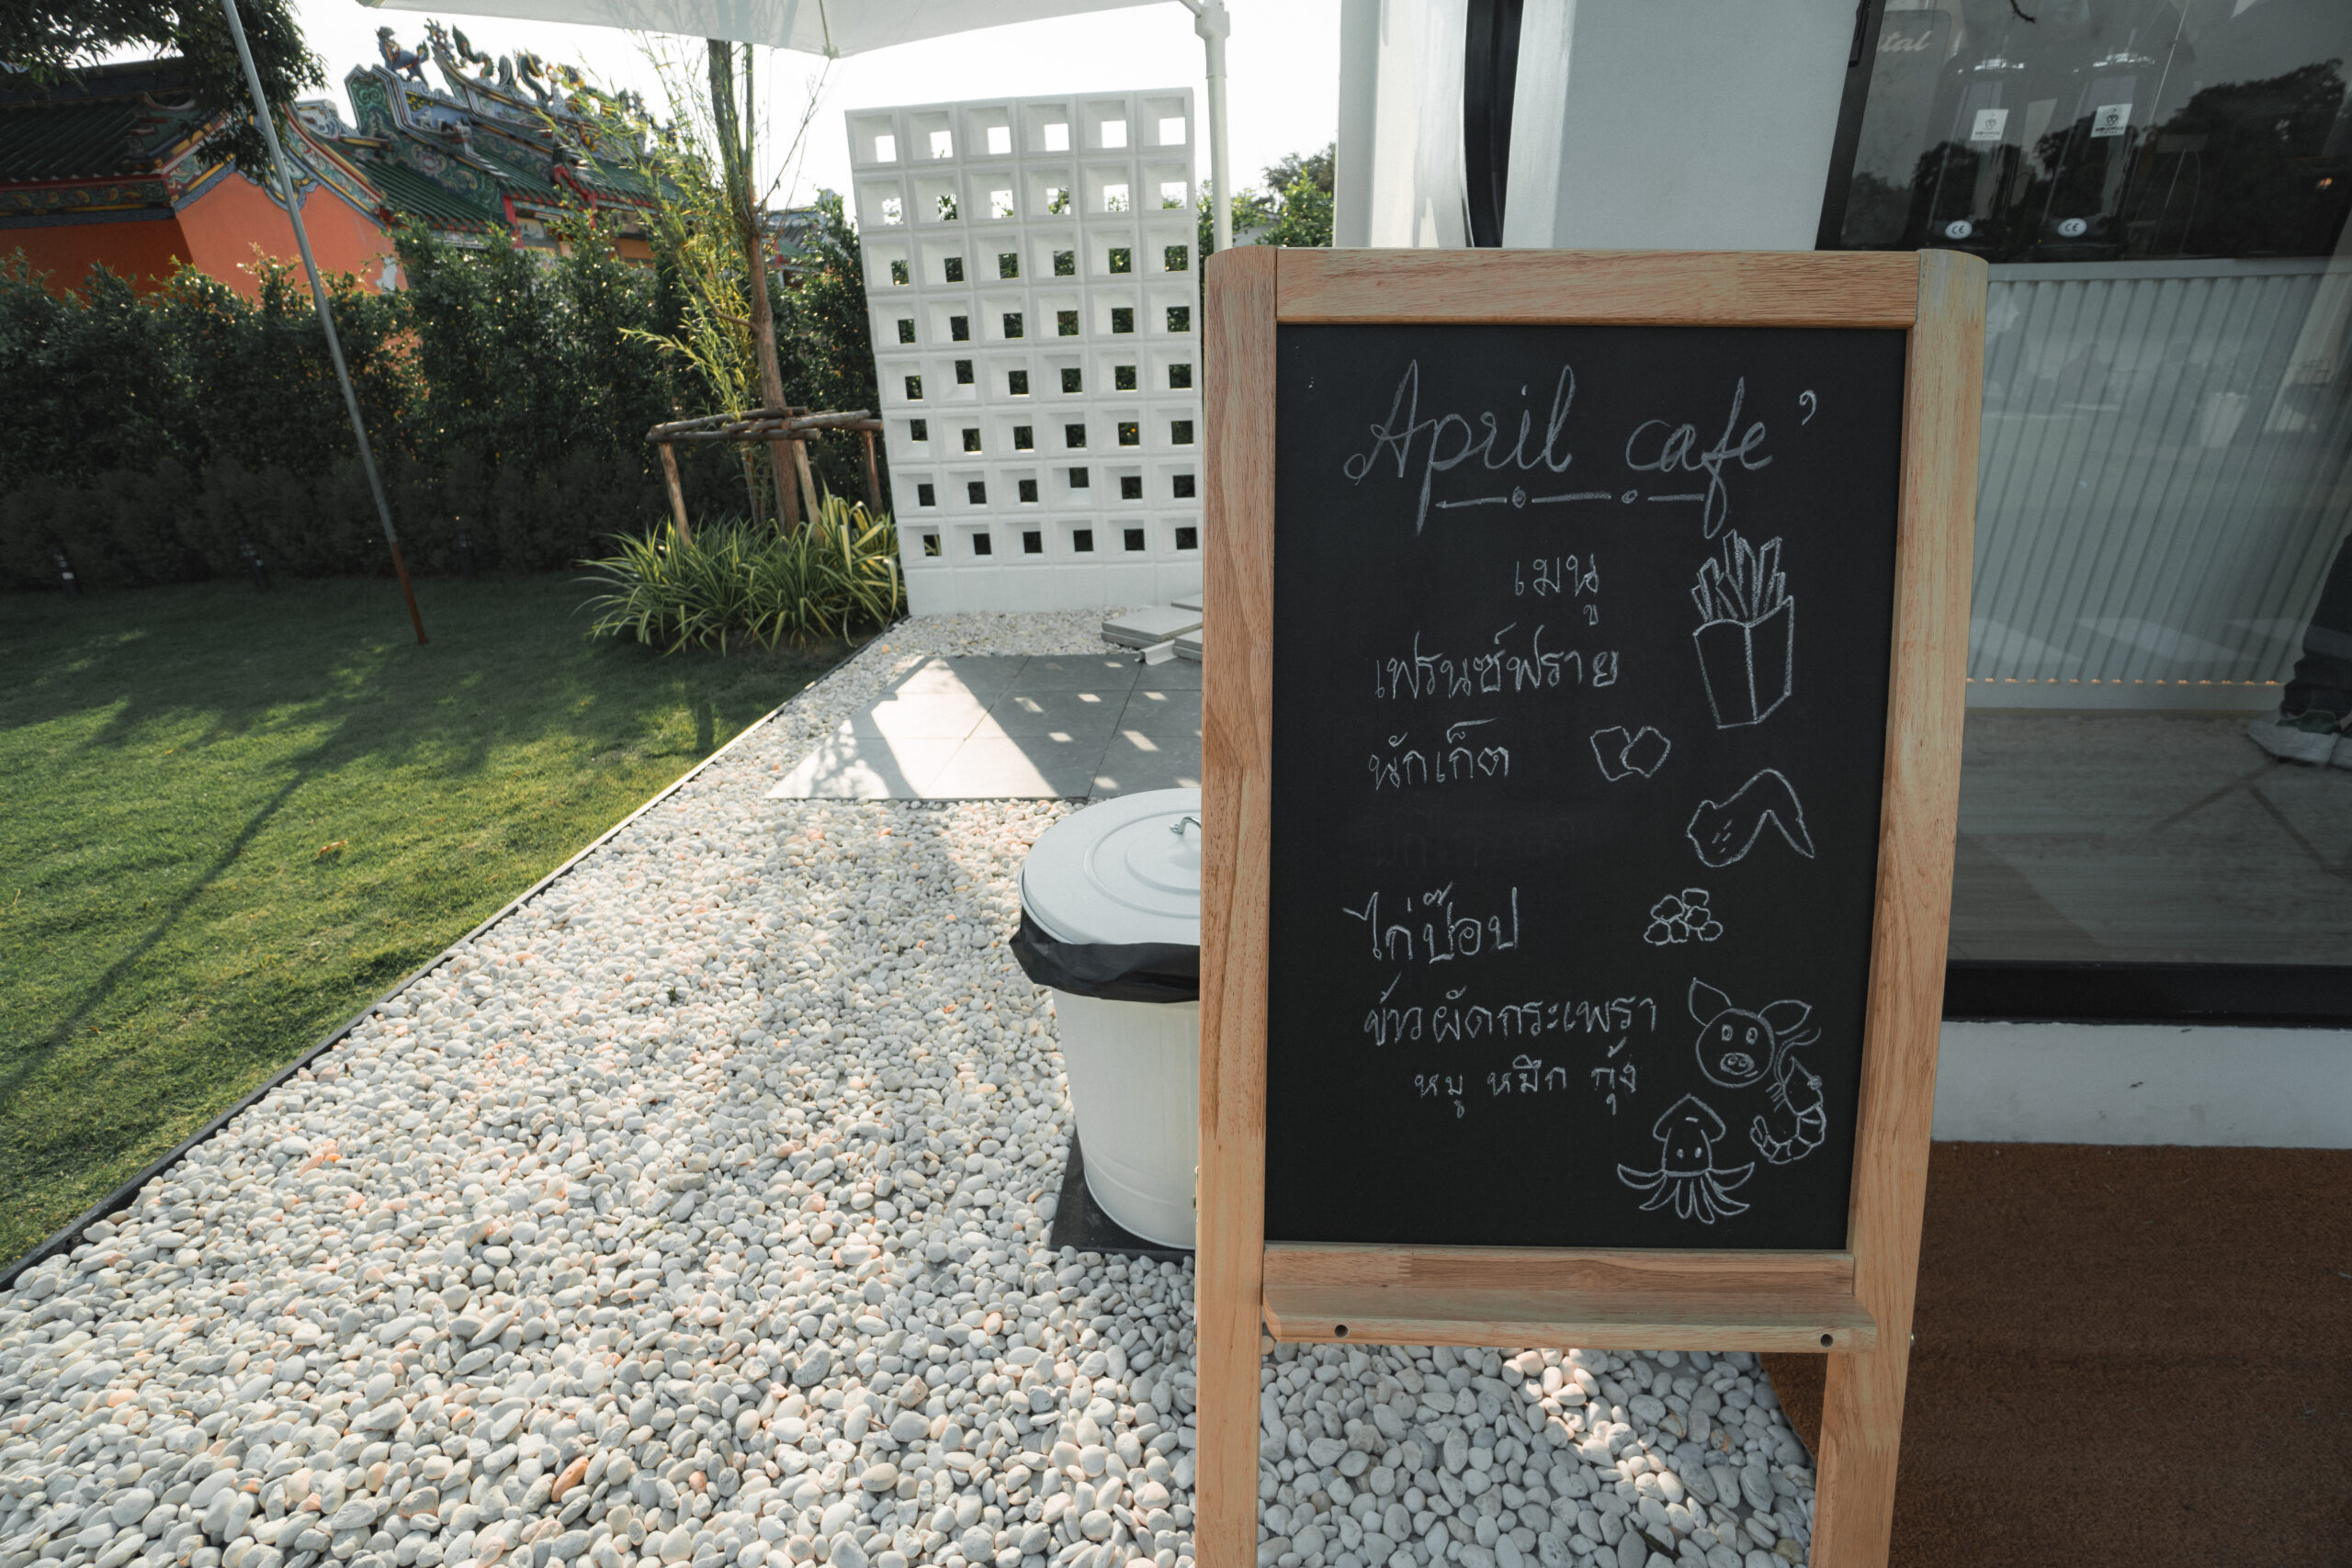 April cafe'
เมนู
เฟรนซ์ฟราย
นักเก็ต
ไก่ป๊อป
ข้าวผัดกระเพรา
หมู หมึก กุ้ง
CE
CE